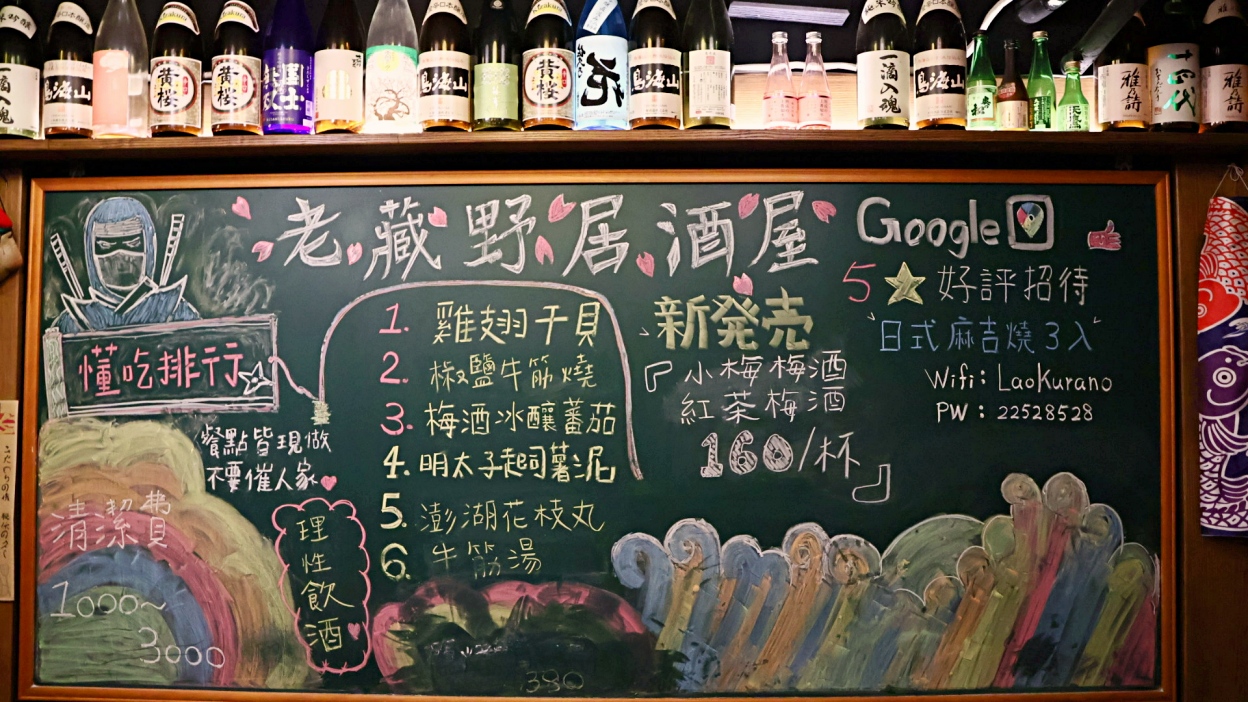 一滴入魂
鳥海山
黄桜
黄桜
鳥海山
黄桜
花
鳥海山
一滴入魂
鳥海山
雅乃詩
十四代
雅乃詩
老藏野居酒屋
Google
5★好評招待
日式麻吉燒3入
Wifi: LaoKurano
PW: 22528528
懂吃排行
1. 雞翅干貝
2. 椒鹽牛筋燒
3. 梅酒冰釀蕃茄
4. 明太子起司薯泥
5. 澎湖花枝丸
6. 牛筋湯
新発売
『小梅梅酒
紅茶梅酒
160/杯』
餐點皆現做
不要催人家
理性飲酒
清潔費
1000~
3000
380